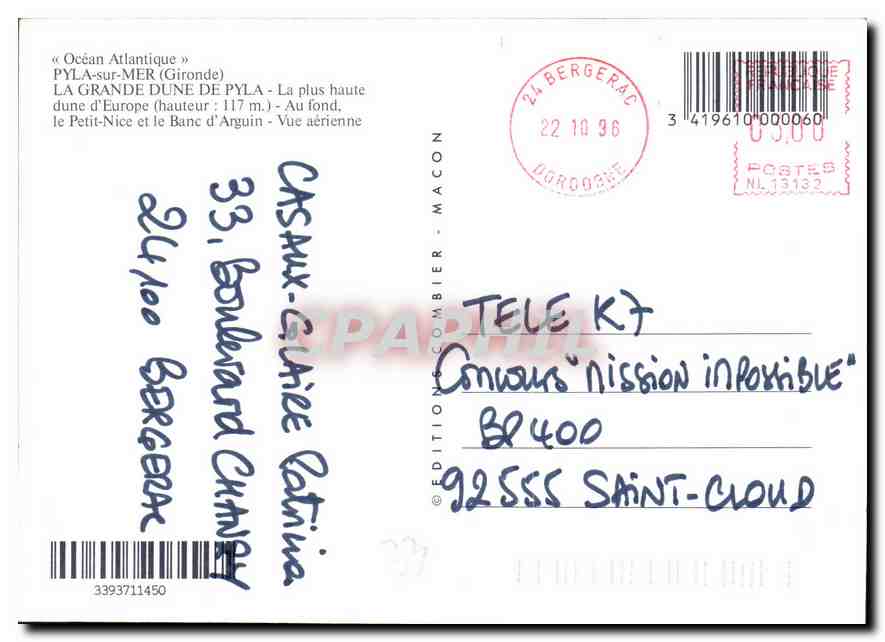 « Océan Atlantique »
PYLA-sur-MER (Gironde)
LA GRANDE DUNE DE PYLA - La plus haute
dune d'Europe (hauteur : 117 m.) - Au fond,
le Petit-Nice et le Banc d'Arguin - Vue aérienne
CASAUX-GLAIRE Patricia
33, Boulevard CHANZY
24100 BERGERAC
3393711450
© EDITIONS COMBIER - MACON
24 BERGERAC
22 10 96
DORDOGNE
3 419610 000060
REPUBLIQUE
FRANCAISE
03,00
POSTES
NL 13132
TELE K7
Concours "MISSION IMPOSSIBLE"
BP 400
92555 SAINT-CLOUD
CPAPHIL